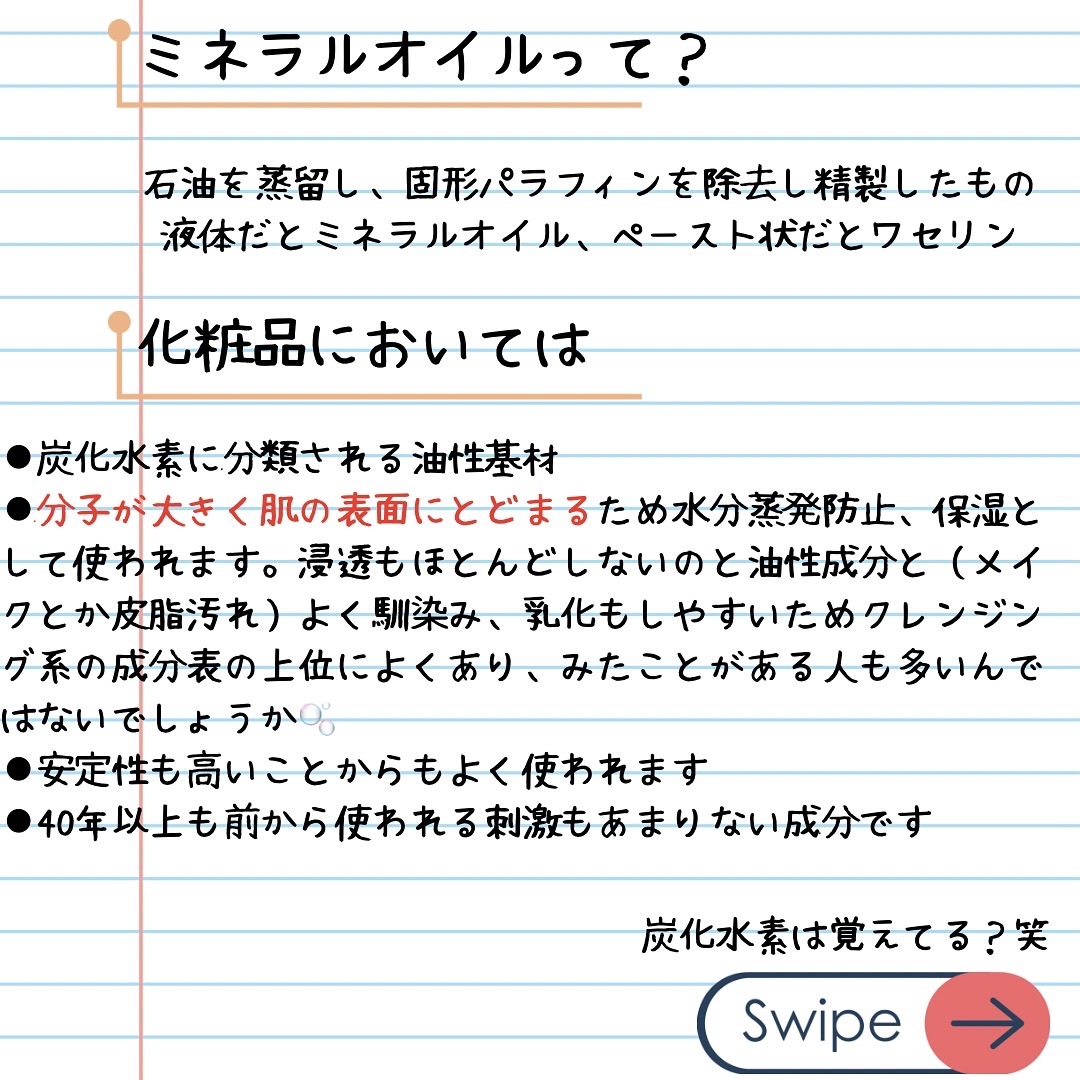 ミネラルオイルって？
石油を蒸留し、固形パラフィンを除去し精製したもの
液体だとミネラルオイル、ペースト状だとワセリン
化粧品においては
●炭化水素に分類される油性基材
●分子が大きく肌の表面にとどまるため水分蒸発防止、保湿と
して使われます。浸透もほとんどしないのと油性成分と（メイ
クとか皮脂汚れ）よく馴染み、乳化もしやすいためクレンジン
グ系の成分表の上位によくあり、みたことがある人も多いんで
はないでしょうか🫧
●安定性も高いことからもよく使われます
●40年以上も前から使われる刺激もあまりない成分です
炭化水素は覚えてる？笑
Swipe